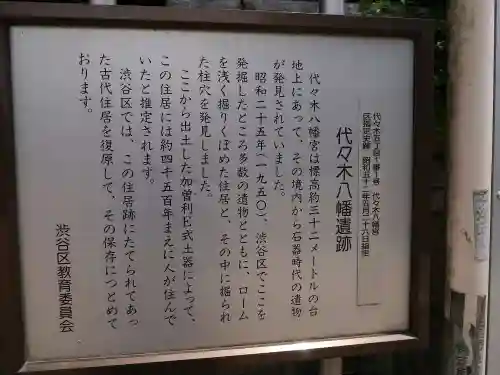 代々木五丁目一番一号 代々木八幡宮
区指定史跡 昭和五十二年五月二十六日指定
代々木八幡遺跡
代々木八幡宮は標高約三十二メートルの台
地上にあって、その境内から石器時代の遺物
が発見されていました。
昭和二十五年(一九五〇)、渋谷区でここを
発掘したところ多数の遺物とともに、ローム
を浅く掘りくぼめた住居と、その中に掘られ
た柱穴を発見しました。
ここから出土した加曽利E式土器によって、
この住居には約四千五百年まえに人が住んで
いたと推定されます。
渋谷区では、この住居跡にたてられてあっ
た古代住居を復原して、その保存につとめて
おります。
渋谷区教育委員会